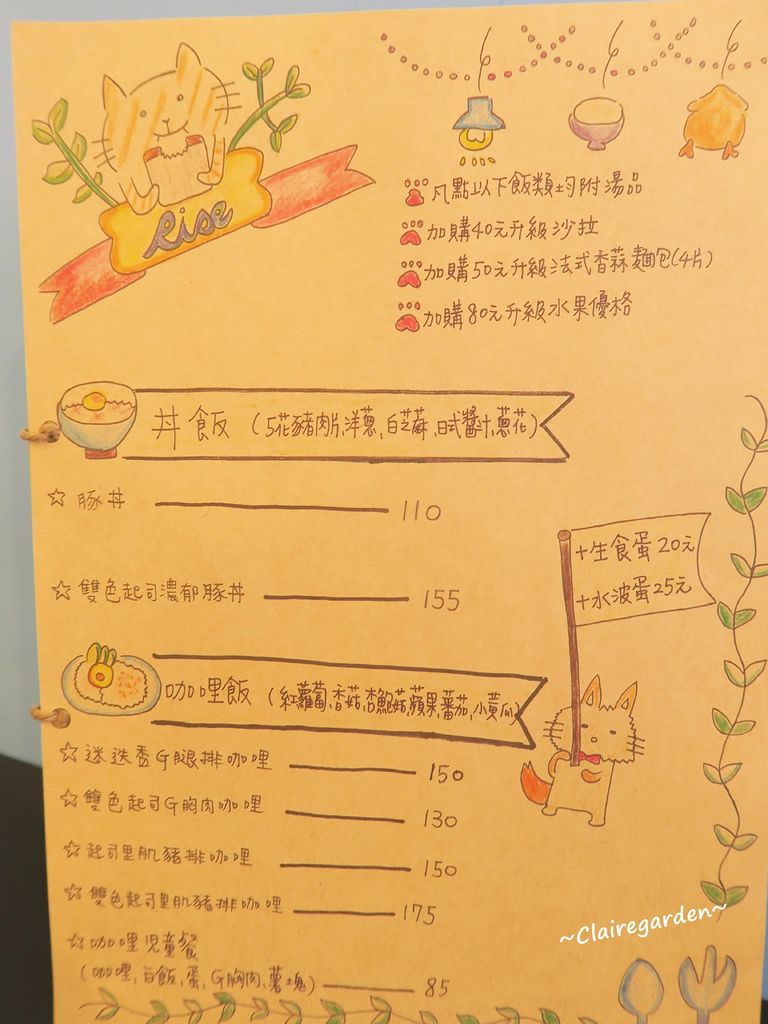 Rise
凡點以下飯類均附湯品
加購40元升級沙拉
加購50元升級法式香蒜麵包(4片)
加購80元升級水果優格
丼飯 (5花豬肉片,洋蔥,白芝麻,日式醬汁,蔥花)
☆ 豚丼 110
☆ 雙色起司濃郁豚丼 155
+生食蛋20元
+水波蛋25元
咖哩飯 (紅蘿蔔,香菇,杏鮑菇,蘋果,蕃茄,小黃瓜)
☆ 迷迭香G腿排咖哩 150
☆ 雙色起司G胸肉咖哩 130
☆ 起司里肌豬排咖哩 150
☆ 雙色起司里肌豬排咖哩 175
☆ 咖哩兒童餐
(咖哩,白飯,蛋,G胸肉,薯塊) 85
~Clairegarden~